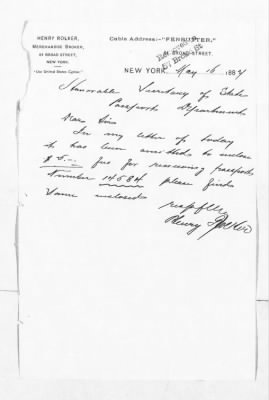 HENRY ROLKER,
MERCHANDISE BROKER,
41 BROAD STREET,
NEW YORK.
"Use United States Cipher."
Cable Address:—"FERBUTTER,"
41 BROAD STREET,
NEW YORK, May 16 1884
Honorable Secretary of State
Passports Department
Dear Sir
In my letter of today
has been omitted to enclose
$ 5.— fee for renewing passport
Number 14584 please find
same enclosed
respflly
Henry Rolker